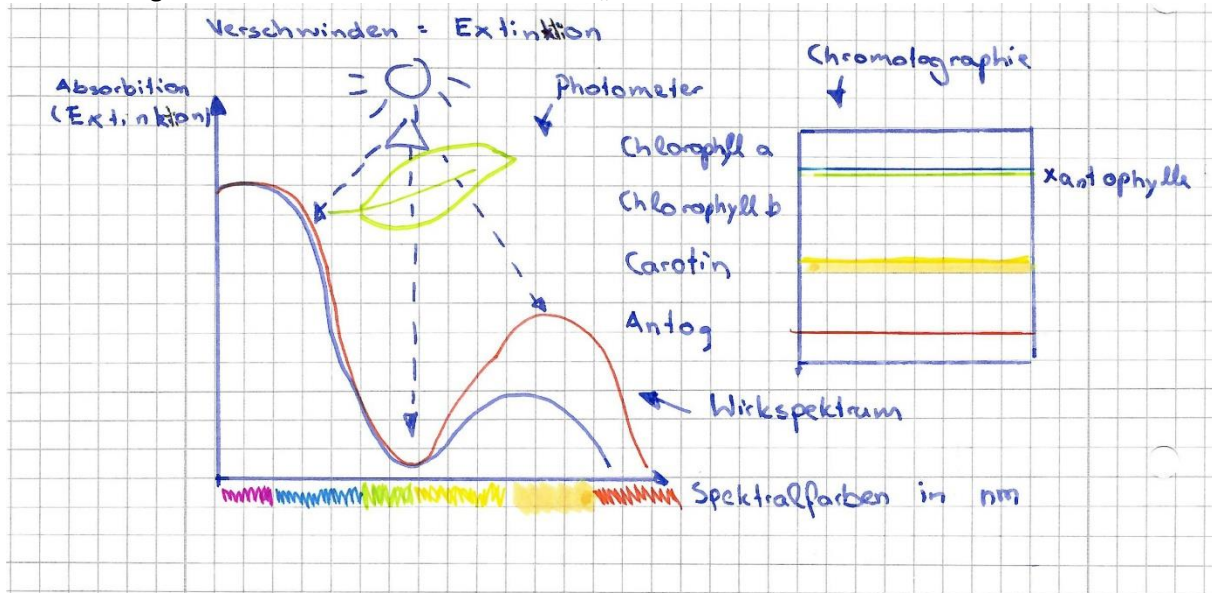 Verschwinden = Extinktion
Absorbition
(Extinktion)
Photometer
Chromotographie
Chlorophyll a
Chlorophyll b
Carotin
Antog
xantophylle
Wirkspektrum
Spektralfarben in nm